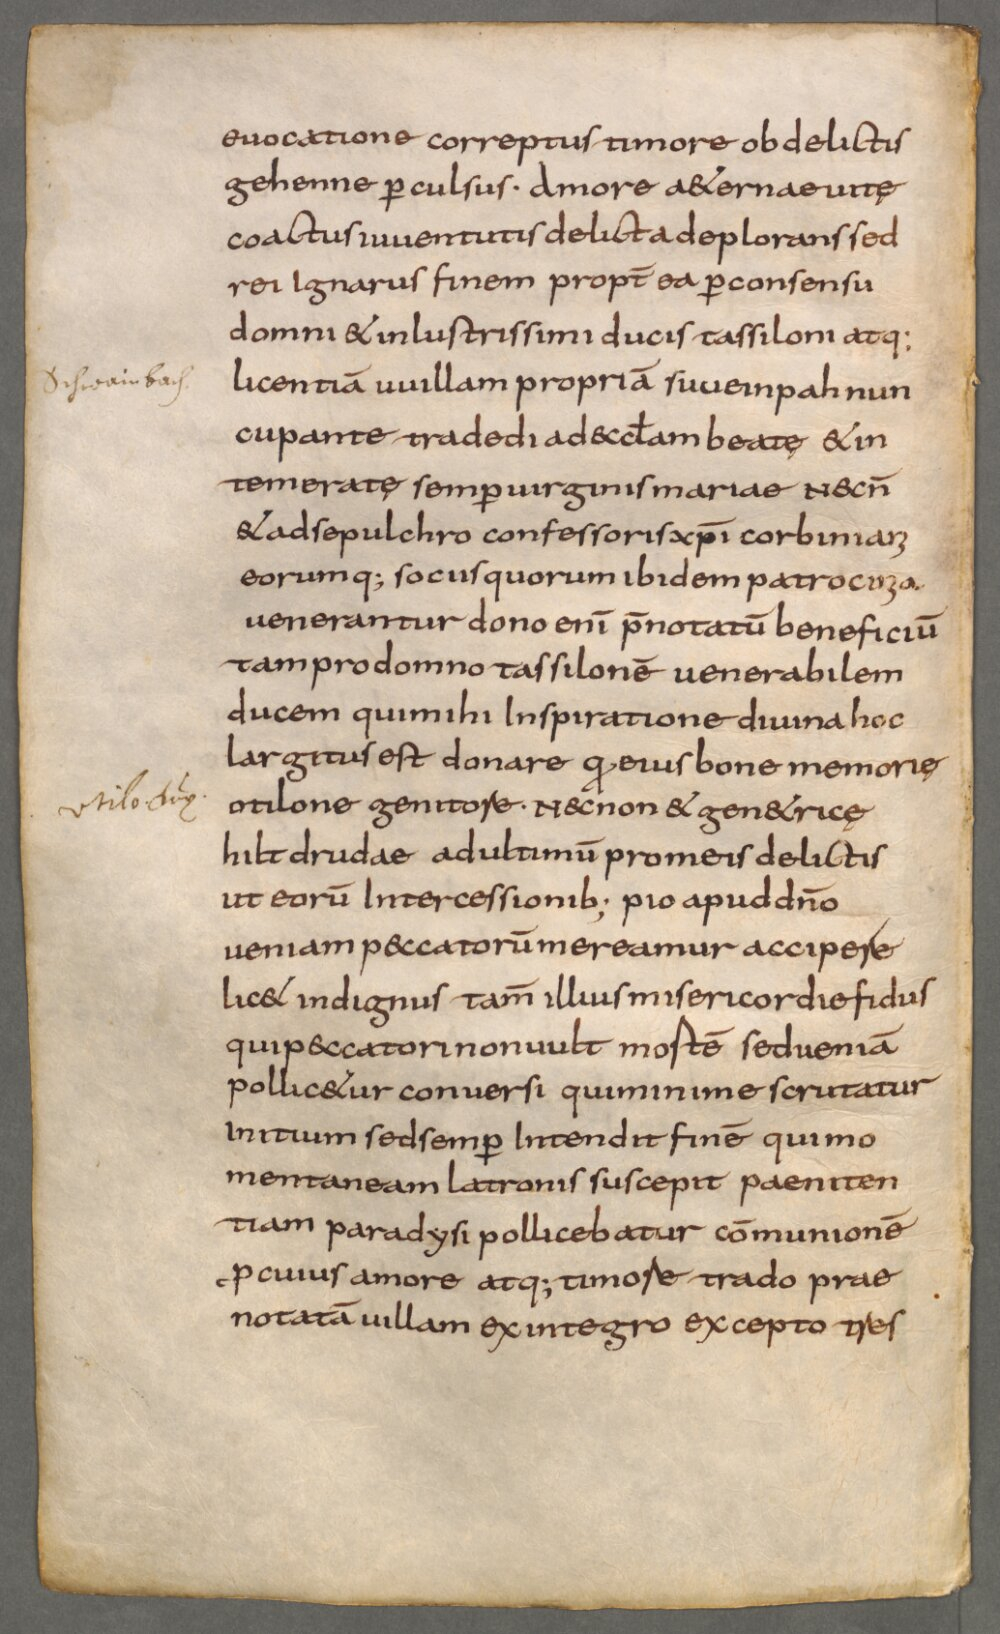 euocatione correptus timore ob delictis
gehenne ꝑculsus· Amore a&ernae uitę
coactus iuuentutis delicta deplorans sed
rei Ignarus finem propt̄ ea ꝑconsensu
domni & inlustrissimi ducis tassiloni atq;
Schwainbach.
licentiā uuillam propriā suueinpah nun
cupante tradedi ad &cct̄am beatę & in
temeratę semꝑ uirginis mariae N&cn̄
& ad sepulchro confessoris xp̄i corbiniani
eorumq; sociis quorum ibidem patrocinia
uenerantur dono enī p̄notatū beneficiū
tam pro domno tassilonē uenerabilem
ducem qui mihi Inspiratione diuina hoc
largitus est donare ꝓ eius bone memorię
Vtilo dux.
otilone genitore· N&cnon & gen&ricę
hiltdrudae ad ultimū pro meis delictis
ut eorū Intercessionib; pio apud dn̄o
ueniam p&ccatorū mereamur accipere
lic& indignus tam̄ illius misericordie fidus
qui p&ccatori non uult mortē sed ueniā
pollic&ur conuersi qui minime scrutatur
Initium sed semꝑ Intendit finē qui mo
mentaneam latronis suscepit paeniten
tiam paradysi pollicebatur cōmunionē
ꝑ cuius amore atq; timore trado prae
notatā uillam ex integro excepto tres